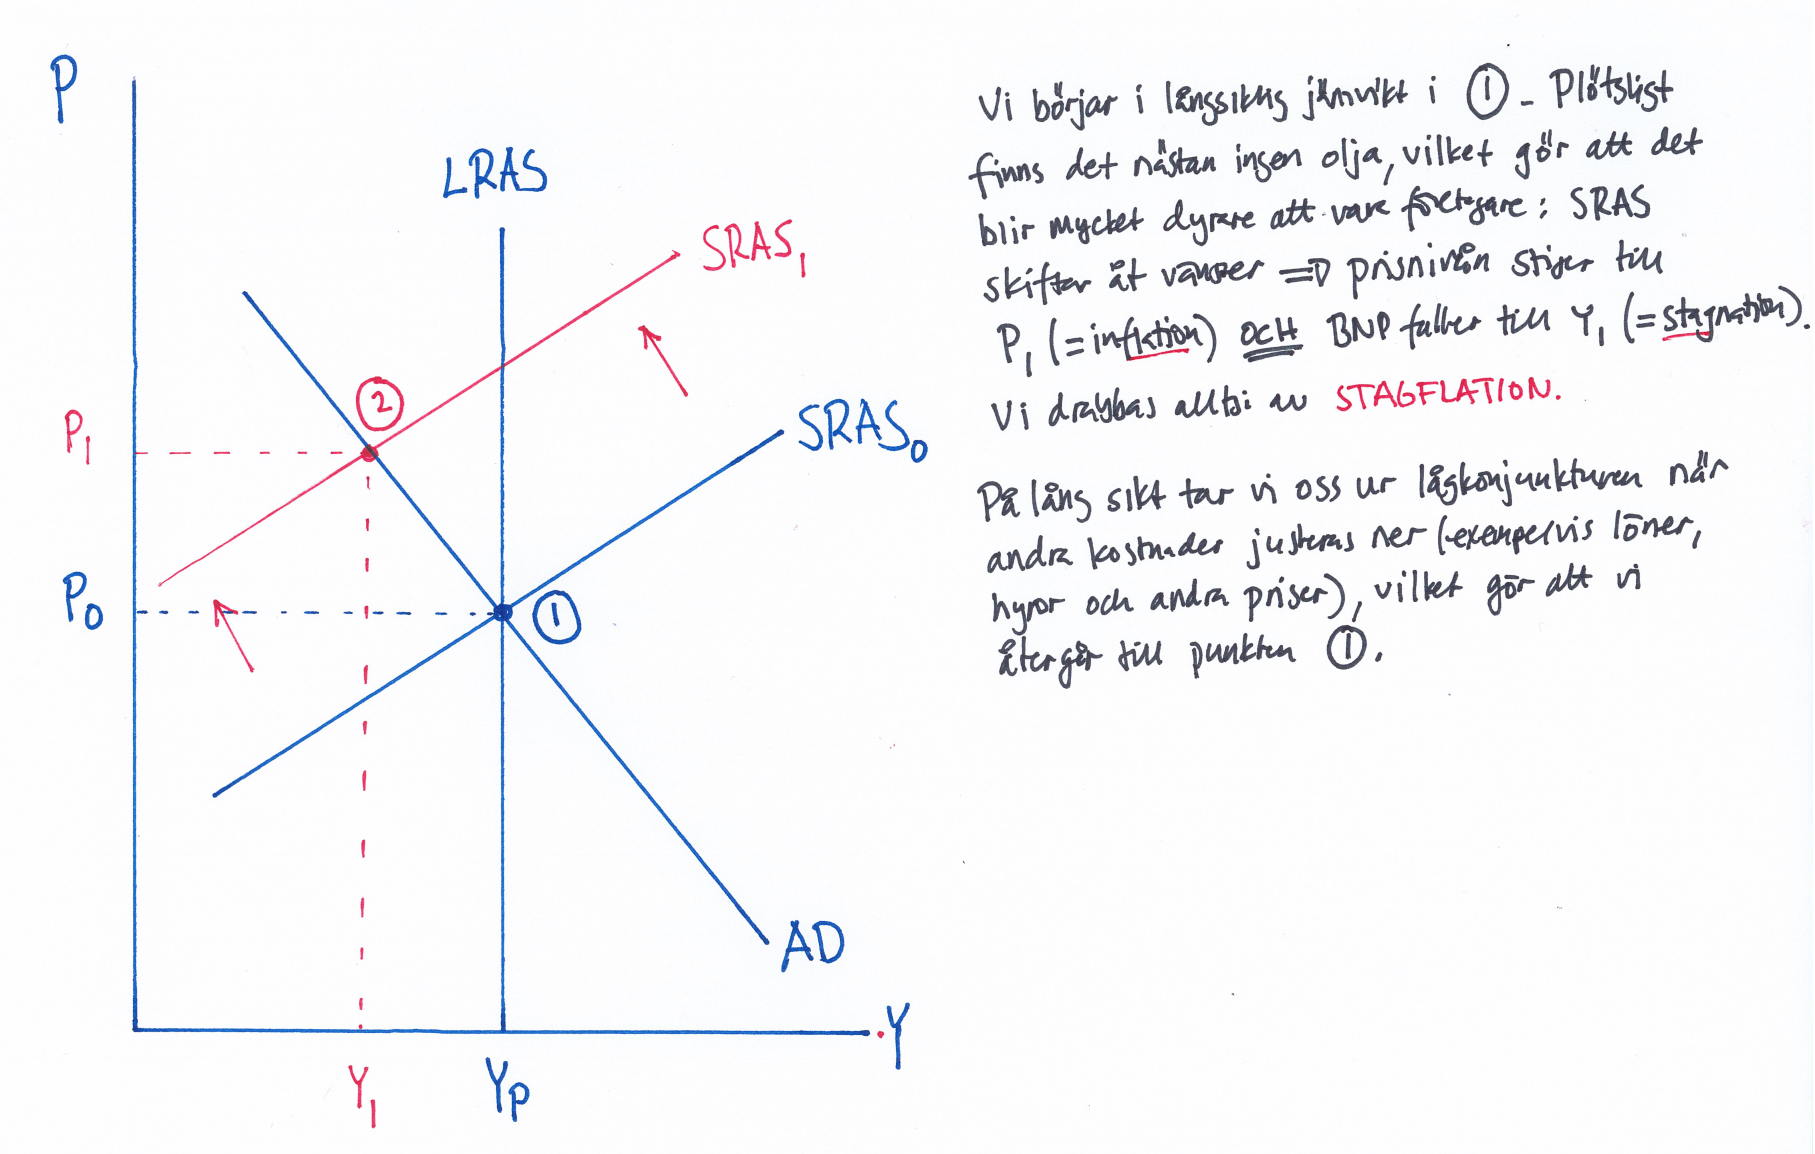 P
LRAS
SRAS₁
②
P₁
SRAS₀
P₀
①
AD
Y
Y₁
Yp
Vi börjar i långsiktig jämvikt i ①. Plötsligt
finns det nästan ingen olja, vilket gör att det
blir mycket dyrare att vara företagare: SRAS
skiftar åt vänster ⇒ prisnivån stiger till
P₁ (=inflation) OCH BNP faller till Y₁ (=stagnation).
Vi drabbas alltså av STAGFLATION.
På lång sikt tar vi oss ur lågkonjunkturen när
andra kostnader justeras ner (exempelvis löner,
hyror och andra priser), vilket gör att vi
återgår till punkten ①.